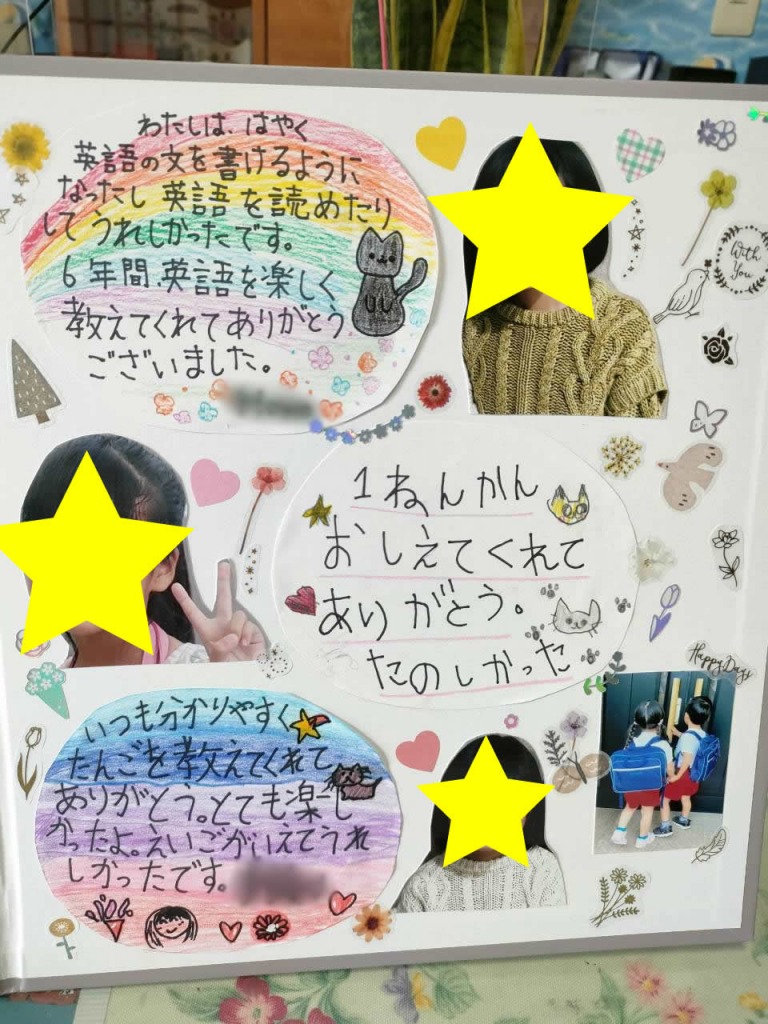 わたしは、はやく
英語の文を書けるように
なったし英語を読めたり
してうれしかったです。
6年間、英語を楽しく
教えてくれてありがとう
ございました。
With
You
1ねんかん
おしえてくれて
ありがとう。
たのしかった
Happy Days
いつも分かりやすく
たんごを教えてくれて
ありがとう。とても楽し
かったよ。えいごがいえてうれ
しかったです。